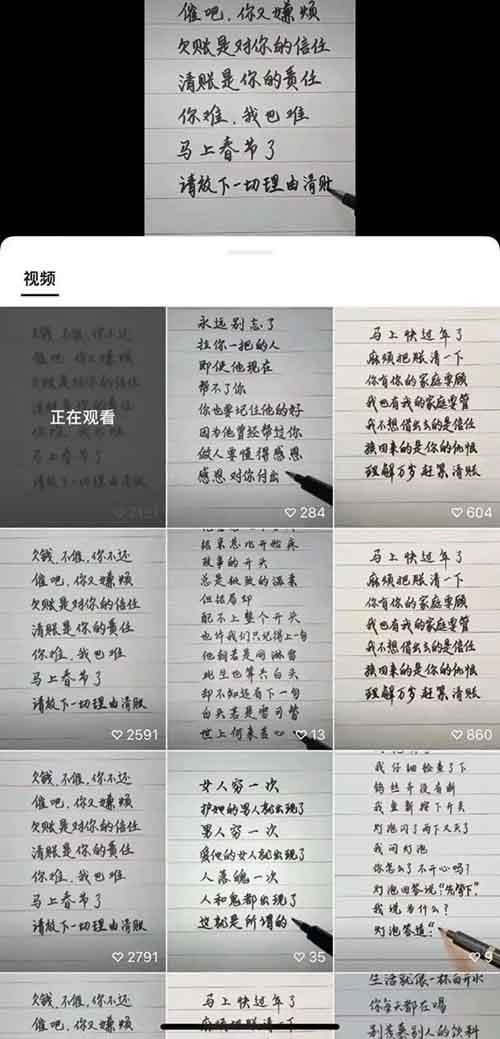 催吧，你又嫌烦
欠账是对你的信任
清账是你的责任
你难，我也难
马上春节了
请放下一切理由清账
视频
欠钱，不催，你不还
催吧，你又嫌烦
欠账是对你的信任
清账是你的责任
你难，我也难
马上春节了
请放下一切理由清账
正在观看
2491
永远别忘了
拉你一把的人
即使他现在
帮不了你
你也要记住他的好
因为他曾经帮过你
做人要懂得感恩
感恩对你付出
284
马上快过年了
麻烦把账清一下
你有你的家庭要顾
我也有我的家庭要管
我不想借出去的是信任
换回来的是你的仇恨
理解万岁赶紧清账
604
欠钱，不催，你不还
催吧，你又嫌烦
欠账是对你的信任
清账是你的责任
你难，我也难
马上春节了
请放下一切理由清账
2591
故事的开头
总是极致的温柔
但结局却
配不上整个开头
也许我们只记得上一句
他朝若是同淋雪
此生也算共白头
却不知还有下一句
白头若是雪可替
世上何来苦心
13
马上快过年了
麻烦把账清一下
你有你的家庭要顾
我也有我的家庭要管
我不想借出去的是信任
换回来的是你的仇恨
理解万岁赶紧清账
860
欠钱，不催，你不还
催吧，你又嫌烦
欠账是对你的信任
清账是你的责任
你难，我也难
马上春节了
请放下一切理由清账
2791
女人穷一次
护她的男人就出现了
男人穷一次
爱他的女人就出现了
人落魄一次
人和鬼都出现了
这就是所谓的
35
我仔细检查了下
钨丝并没有断
我重新按下开关
灯泡闪了两下又灭了
我问灯泡
你怎么了不开心吗?
灯泡回答说:"先停下"
我说为什么?
灯泡答道:"
9
欠钱，不催，你不还
催吧，你又嫌烦
马上快过年了
麻烦把账清一下
生活就像一杯白开水
你每天都在喝
别羡慕别人的饮料